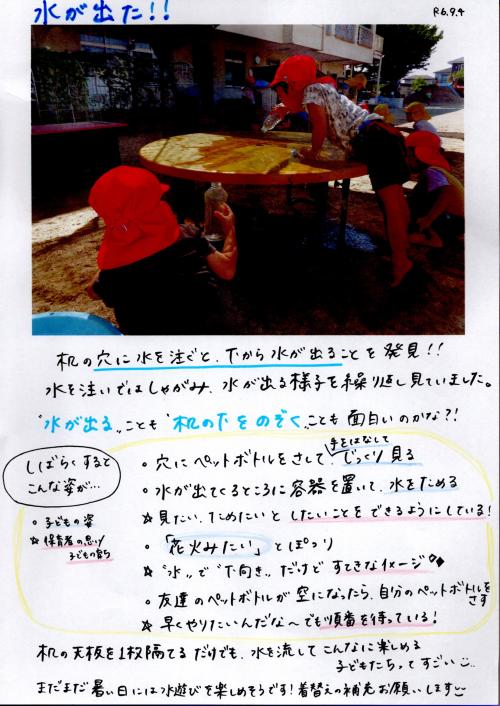 水が出た!!
R6.9.4
机の穴に水を注ぐと、下から水が出ることを発見!!
水を注いではしゃがみ、水が出る様子を繰り返し見ていました。
"水が出る"ことも"机の下をのぞく"ことも面白いのかな?!
しばらくすると
こんな姿が…
○子どもの姿
☆保育者の思い/
子どもの育ち
○穴にペットボトルをさして、手をはなしてじっくり見る
○水が出てくるところに容器を置いて、水をためる
☆見たい、ためたいとしたいことをできるようにしている!
○「花火みたい」とぽつり
☆"水"で"下向き"だけどすてきなイメージ
○友達のペットボトルが空になったら、自分のペットボトルをさす
☆早くやりたいんだな〜でも順番を待っている!
机の天板を1枚隔てるだけでも、水を流してこんなに楽しめる
子どもたちってすごい
まだまだ暑い日には水遊びを楽しめそうです!着替えの補充お願いします